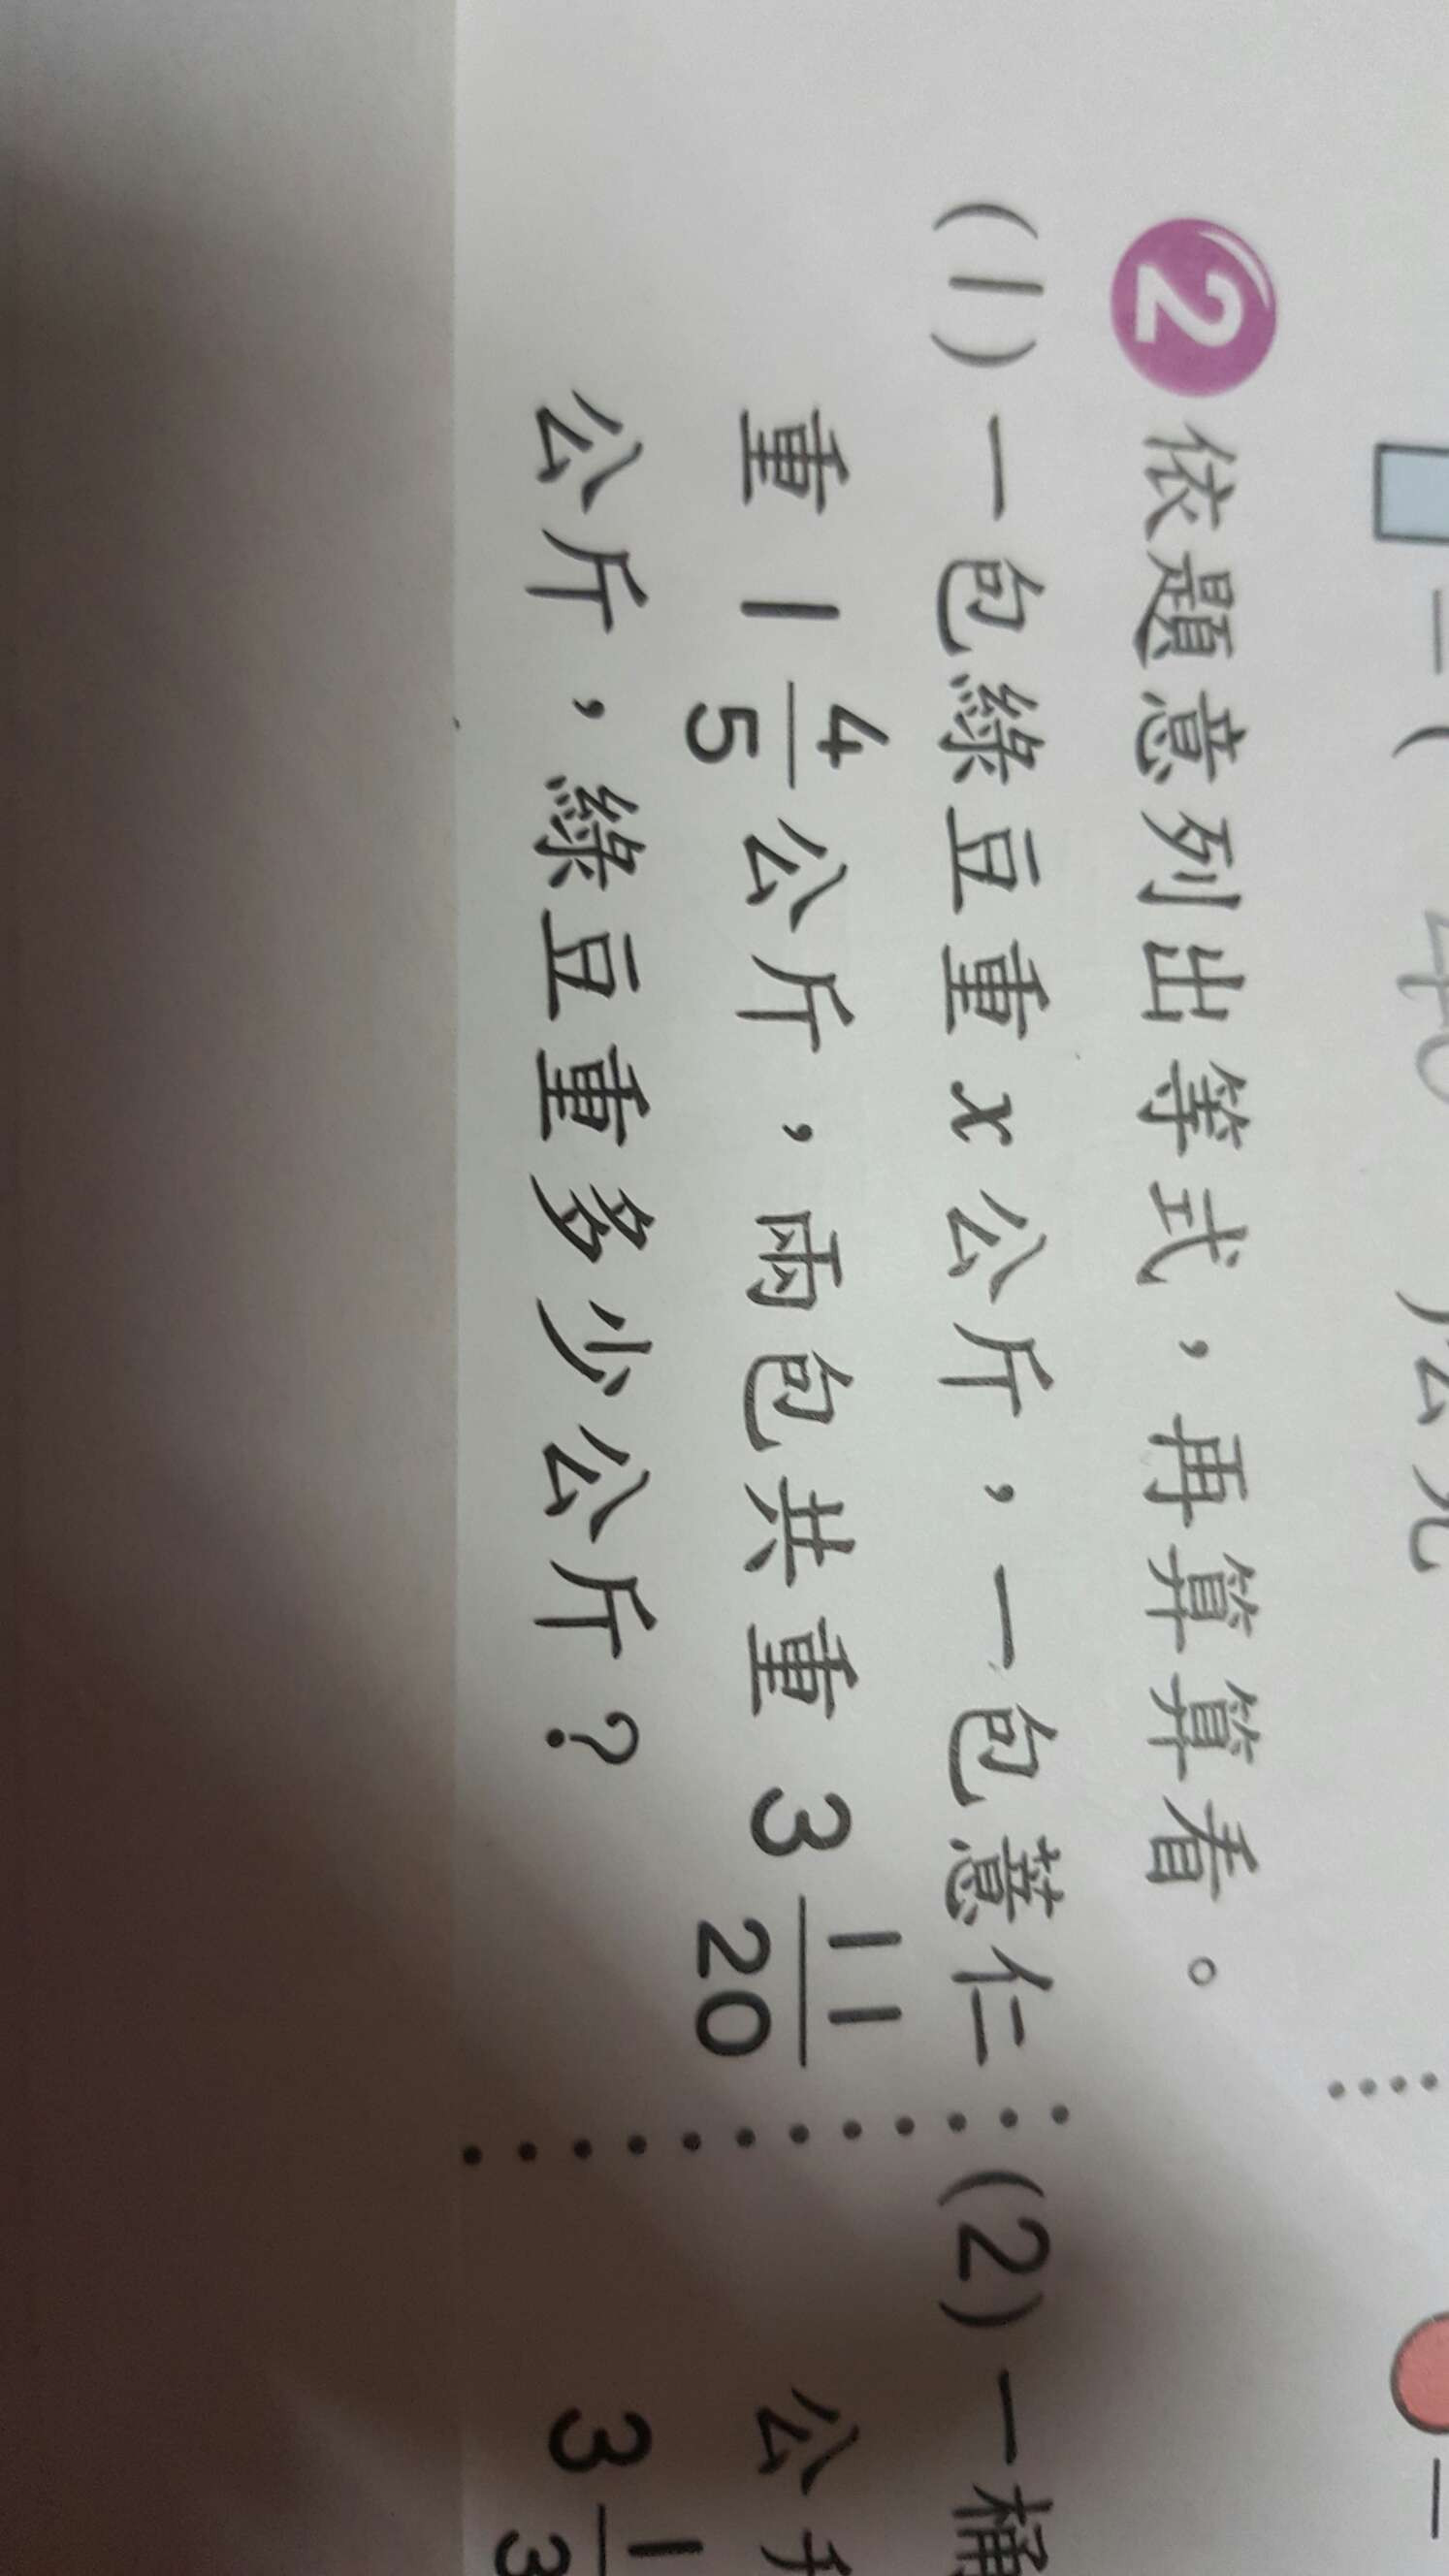 □－( 40 )公克
2 依題意列出等式，再算算看。
(1) 一包綠豆重 x 公斤，一包薏仁
重 1 4/5 公斤，兩包共重 3 11/20
公斤，綠豆重多少公斤？
(2) 一桶
公升
3 1/3